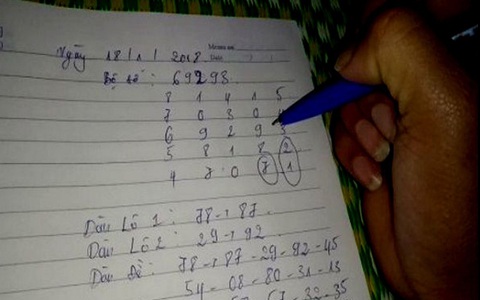 Ngày 18/1/2018
Bộ số: 69293.
8 1 4 1 5
7 0 3 0 4
6 9 2 9 3
5 8 1 8 2
4 7 0 7 1
Dàn Lô 1: 78-187
Dàn Lô 2: 29-192
Dàn Đề: 78-187-29-92-45
54-08-80-31-13
67-32-35